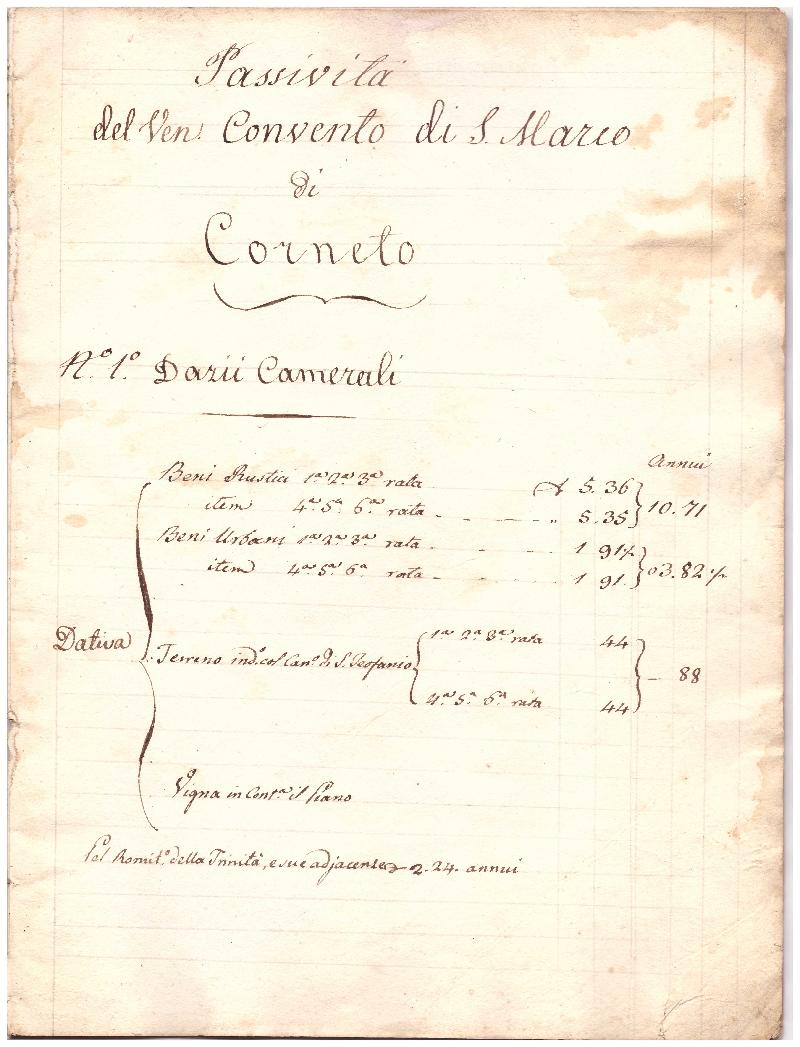 Passività
del Ven. Convento di S. Marco
di
Corneto
N.o 1.o Dazii Camerali
Annui
Beni Rustici 1a 2a 3a rata 5. 36
item 4a 5a 6a rata - - - - " 5. 35 } 10. 71
Beni Urbani 1a 2a 3a rata - - - - 1 91½
item 4a 5a 6a rata - - - - 1 91. } 03. 82½
Dativa
Terreno ind.o col Can.o di S. Teofanio
1a 2a 3a rata 44
4a 5a 6a rata 44 } - 88
Vigna in Cont.a il Piano
Pel Romit.o della Trinità, e sue adjacenze 2. 24. annui